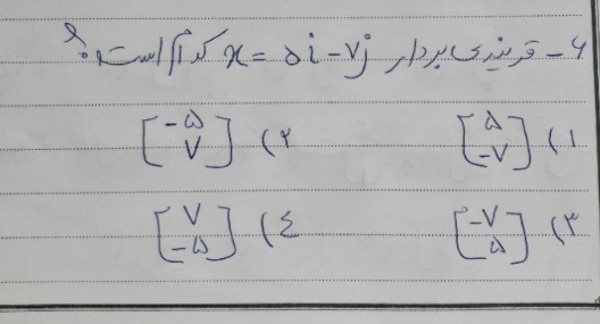 ۶- قرینه‌ی بردار x = ۵i - ۷j کدام است؟
۱) [۵ -۷] ۲) [-۵ ۷]
۳) [-۷ ۵] ۴) [۷ -۵]